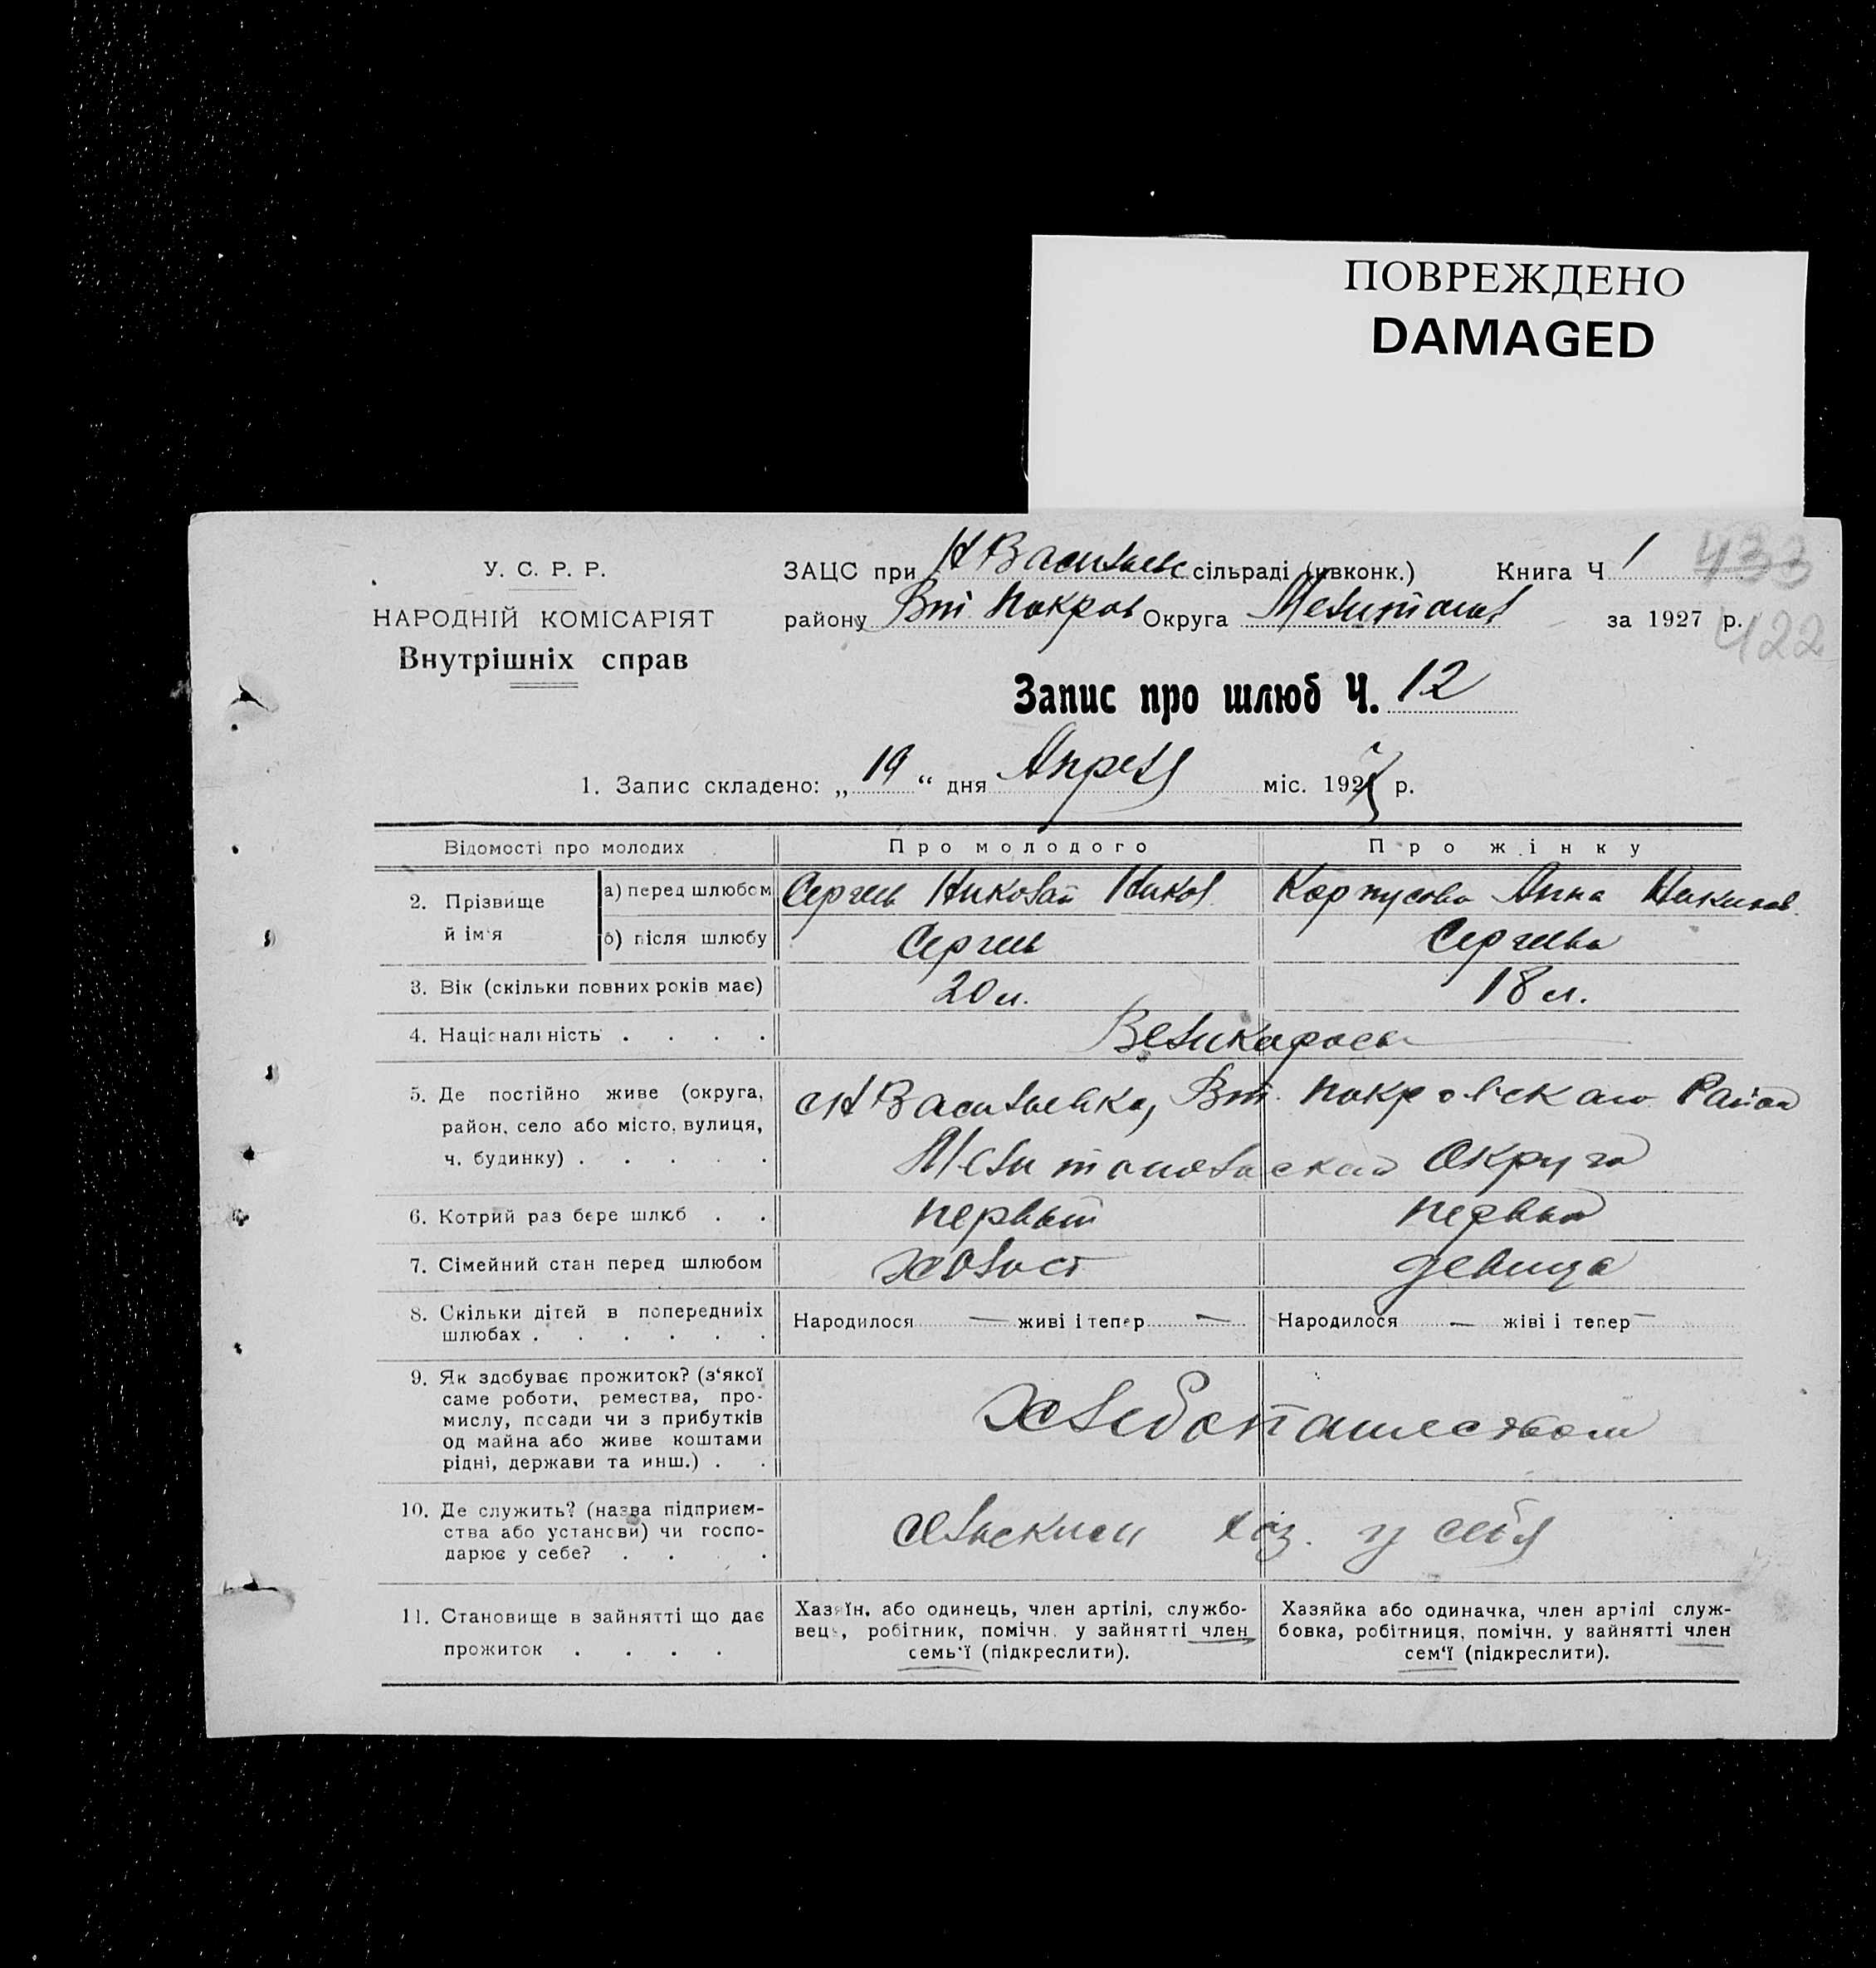 ПОВРЕЖДЕНО
DAMAGED
У. С. Р. Р.
НАРОДНІЙ КОМІСАРІЯТ
Внутрішніх справ
ЗАЦС при Н Васильевс сільраді (нвконк.) Книга Ч 1 433
району Вт. Покров Округа Мелитопол за 1927 р. 422
Запис про шлюб Ч. 12
1. Запис складено: „19“ дня Апреля міс. 1927 р.
Відомості про молодих Про молодого Про жінку
2. Прізвище й ім'я
а) перед шлюбом Сергеев Николай Никол. Карпусова Анна
б) після шлюбу Сергеев Сергеева
3. Вік (скільки повних років має) 20 л. 18 л.
4. Національність . . . . Великаросы
5. Де постійно живе (округа,
район, село або місто, вулиця,
ч. будинку) . . . . .
с Н Васильевка, Вт. Покровскаго Район
Мелитопольской Округа
6. Котрий раз бере шлюб . . первый первый
7. Сімейний стан перед шлюбом холост девица
8. Скільки дітей в попередниіх
шлюбах . . . . . .
Народилося — живі і тепер — Народилося — жіві і тепер —
9. Як здобуває прожиток? (з'якої
саме роботи, ремества, про-
мислу, посади чи з прибутків
од майна або живе коштами
рідні, держави та инш.) . .
хлебопашеством
10. Де служить? (назва підприєм-
ства або установи) чи госпо-
дарює у себе? . . . .
сельским хоз. у себя
11. Становище в зайнятті що дає
прожиток . . . .
Хазяїн, або одинець, член артілі, службо-
вець, робітник, помічн. у зайнятті член
семь'ї (підкреслити).
Хазяйка або одиначка, член артілі служ-
бовка, робітниця, помічн. у зайнятті член
сем'ї (підкреслити).